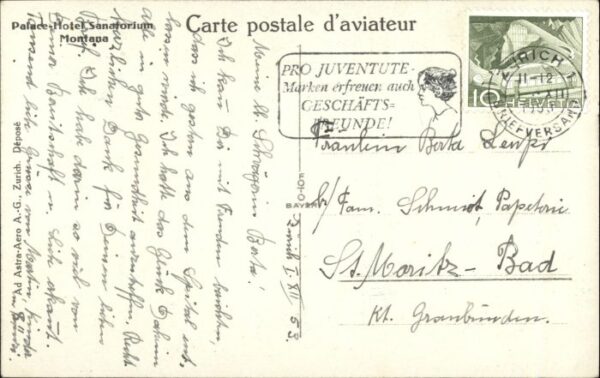 Palace-Hotel Sanatorium
Montana
Carte postale d'aviateur
PRO JUVENTUTE-
Marken erfreuen auch
GESCHÄFTS=
FREUNDE!
ZÜRICH 1
11-12
BRIEFVERSAND
10 HELVETIA
Fräulein Berta
b/ Fam. Schmidt, Papeterie
St. Moritz - Bad
Kt. Graubünden.
Ad Astra-Aero A.-G., Zurich. Déposé
Zürich 1. XII 53.
Meine lb. Schwägerin Berta!
Ich kann Dir mit Freuden berichten,
dass ich gestern aus dem Spital ent-
lassen wurde. Ich hatte das Glück Daheim
alle in guter Gesundheit anzutreffen. Recht
herzlichen Dank für Deinen lieben
Brief. Ich habe darin so viel von